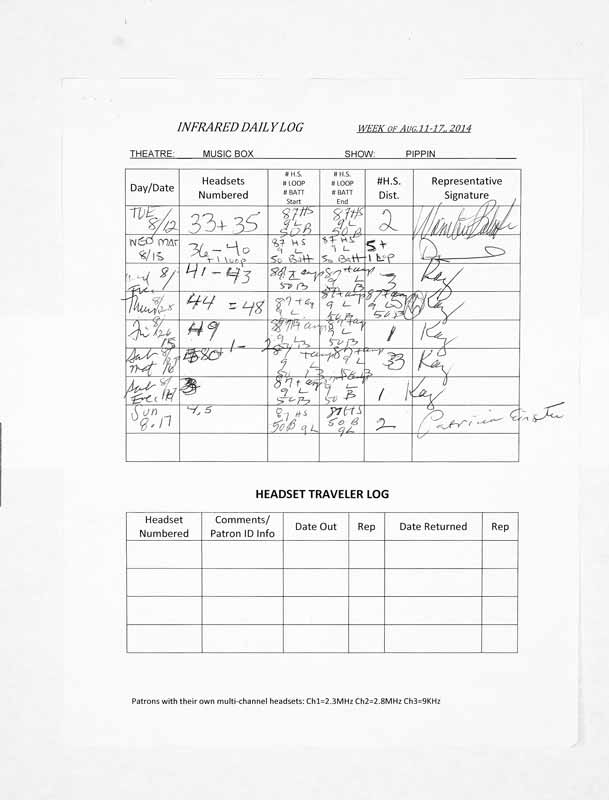 INFRARED DAILY LOG WEEK OF AUG.11-17, 2014
THEATRE: MUSIC BOX SHOW: PIPPIN
Day/Date Headsets Numbered # H.S. # LOOP # BATT Start # H.S. # LOOP # BATT End #H.S. Dist. Representative Signature
TUE 8/12 33+35 87HS 9L 50B 87HS 9L 50B 2
WED MAT 8/13 36-40 +1 LOOP 87 HS 9 L 50 Batt 87 HS 9 L 50 Batt 5+ 1 LUP
Eve. 8/ 41-43 50B L B 3 Kay
Thurs 8/ 44 = 48 87+ 9 L 50B 9 L 50B 5 Kay
Fri 8/ 49 9L 50B 9L 50B 1 Kay
Sat Mat 8/16 50 1-2 9 9L 50B 3 Kay
Sat Eve 8/ 3 87+ 9L 50B 9L 50 B 1 Kay
Sun 8.17 4,5 87HS 50B 9L 87HS 50B 9L 2 Patricia
HEADSET TRAVELER LOG
Headset Numbered Comments/ Patron ID Info Date Out Rep Date Returned Rep
Patrons with their own multi-channel headsets: Ch1=2.3MHz Ch2=2.8MHz Ch3=9KHz